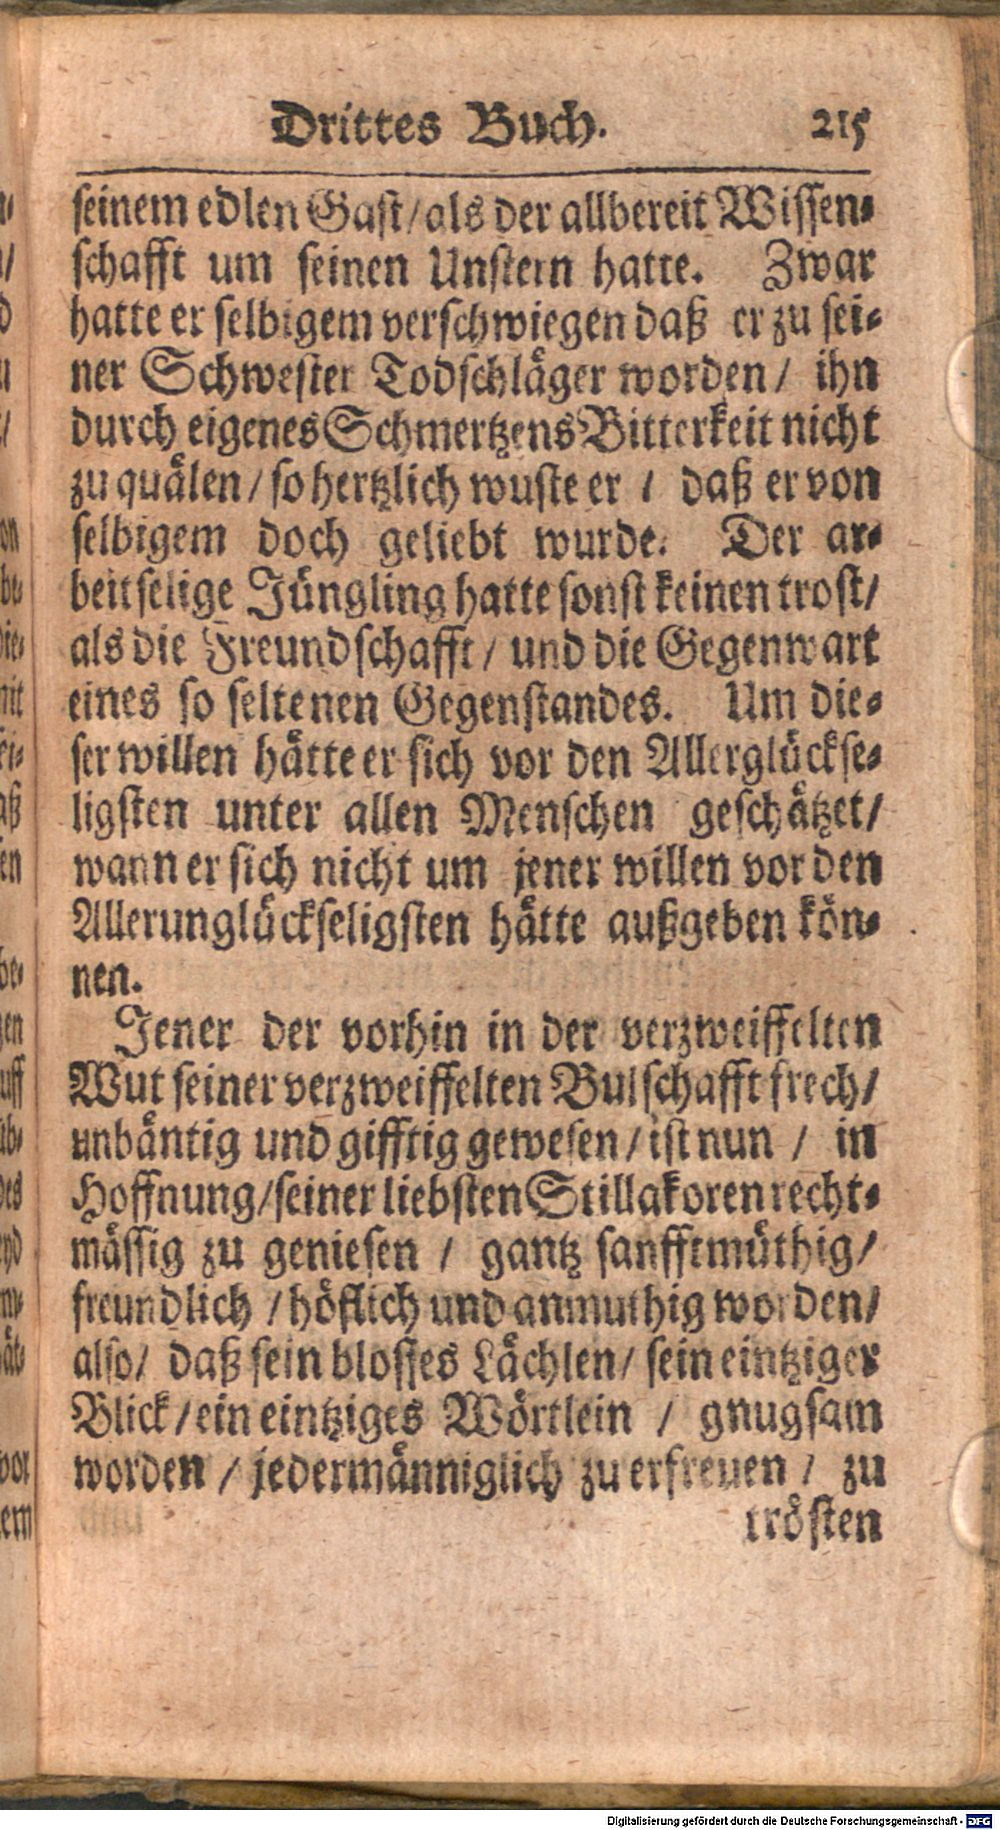 Drittes Buch. 215
seinem edlen Gast/als der allbereit Wissen-
schafft um seinen Unstern hatte. Zwar
hatte er selbigem verschwiegen daß er zu sei-
ner Schwester Todschläger worden/ ihn
durch eigenes Schmertzens Bitterkeit nicht
zu quälen/ so hertzlich wuste er / daß er von
selbigem doch geliebt wurde. Der ar-
beitselige Jüngling hatte sonst keinen trost/
als die Freundschafft/ und die Gegenwart
eines so seltenen Gegenstandes. Um die-
ser willen hätte er sich vor den Allerglückse-
ligsten unter allen Menschen geschätzet/
wann er sich nicht um jener willen vor den
Allerunglückseligsten hätte außgeben kön-
nen.
Jener der vorhin in der verzweiffelten
Wut seiner verzweiffelten Bulschafft frech/
unbäntig und gifftig gewesen/ist nun / in
Hoffnung/seiner liebsten Stillakoren recht-
mässig zu geniesen / gantz sanfftmüthig/
freundlich /höflich und anmuthig worden/
also/ daß sein blosses Lächlen/ sein eintziger
Blick/ein eintziges Wörtlein / gnugsam
worden / jedermänniglich zu erfreuen / zu
trösten
Digitalisierung gefördert durch die Deutsche Forschungsgemeinschaft - DFG